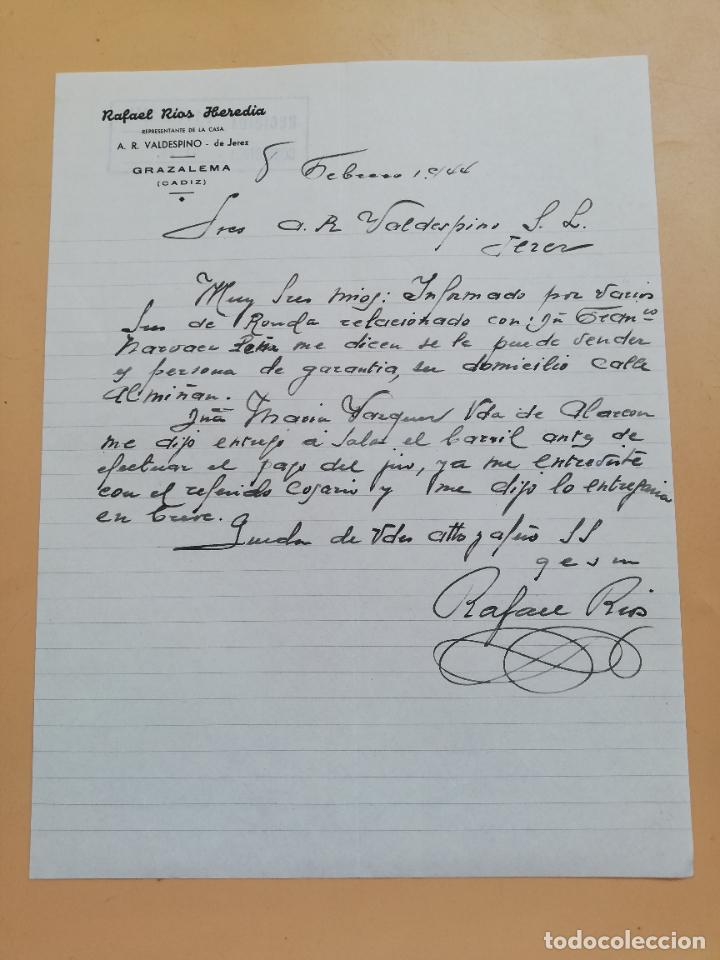 Rafael Ríos Heredia
REPRESENTANTE DE LA CASA
A. R. VALDESPINO - de Jerez
GRAZALEMA
(CADIZ)
8 Febrero 1944
Sres A. R Valdespino S. L.
Jerez
Muy Sres mios: Informado por varios
Sres de Ronda relacionado con Franco
Narvaez Peña me dicen se le puede vender
y persona de garantia, su domicilio calle
Almiñan.
Maria Vazquez Vda de Alarcon
me dijo entrego a Salas el barril antes de
efectuar el pago del jiro, ya me entrevisté
con el referido Cosario y me dijo lo entregaria
en breve.
Quedo de Vdes atto y afmo SS
q e s m
Rafael Rios
todocoleccion.net